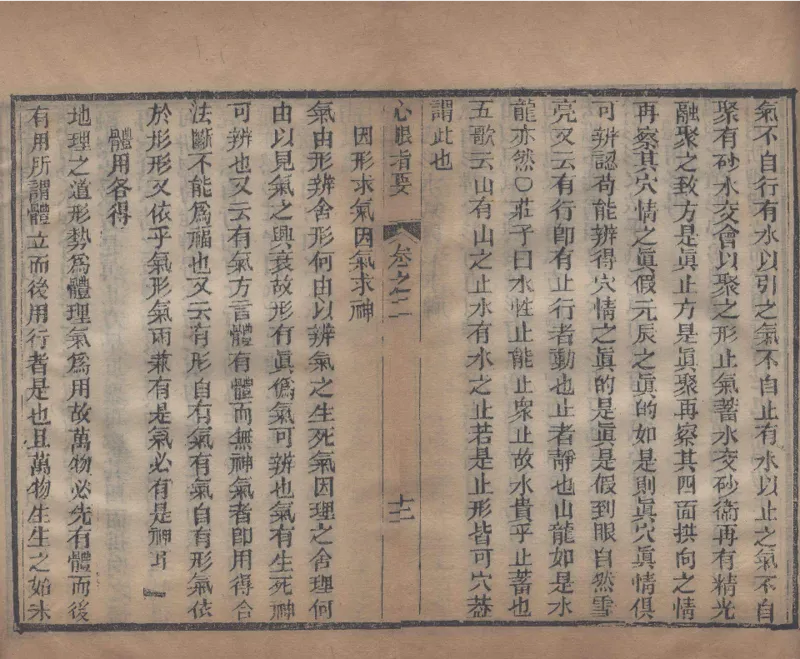 氣不自行有水以引之氣不自止有水以止之氣不自
聚有砂水交會以聚之形止氣蓄水交砂衞再有精光
融聚之致方是眞止方是眞聚再察其四面拱向之情
再察其穴情之眞假元辰之眞的如是則眞穴眞情俱
可辨認苟能辨得穴情之眞的是眞是假到眼自然雪
亮又云有行卽有止行者動也止者靜也山龍如是水
龍亦然○莊子曰水性止能止衆止故水貴乎止蓄也
五歌云山有山之止水有水之止若是止形皆可穴葢
謂此也
心眼指要
卷之二
十二
因形求氣因氣求神
氣由形辨舍形何由以辨氣之生死氣因理之舍理何
由以見氣之興衰故形有眞僞氣可辨也氣有生死神
可辨也又云有氣方言體有體而無神氣者卽用得合
法斷不能爲福也又云有形自有氣有氣自有形氣依
於形形又依乎氣形氣兩兼有是氣必有是神
體用各得
地理之道形勢爲體理氣爲用故萬物必先有體而後
有用所謂體立而後用行者是也且萬物生生之始未